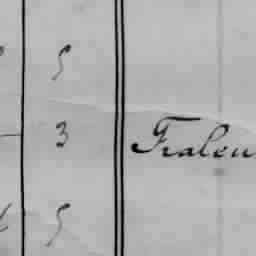 5
3 Fralen
5